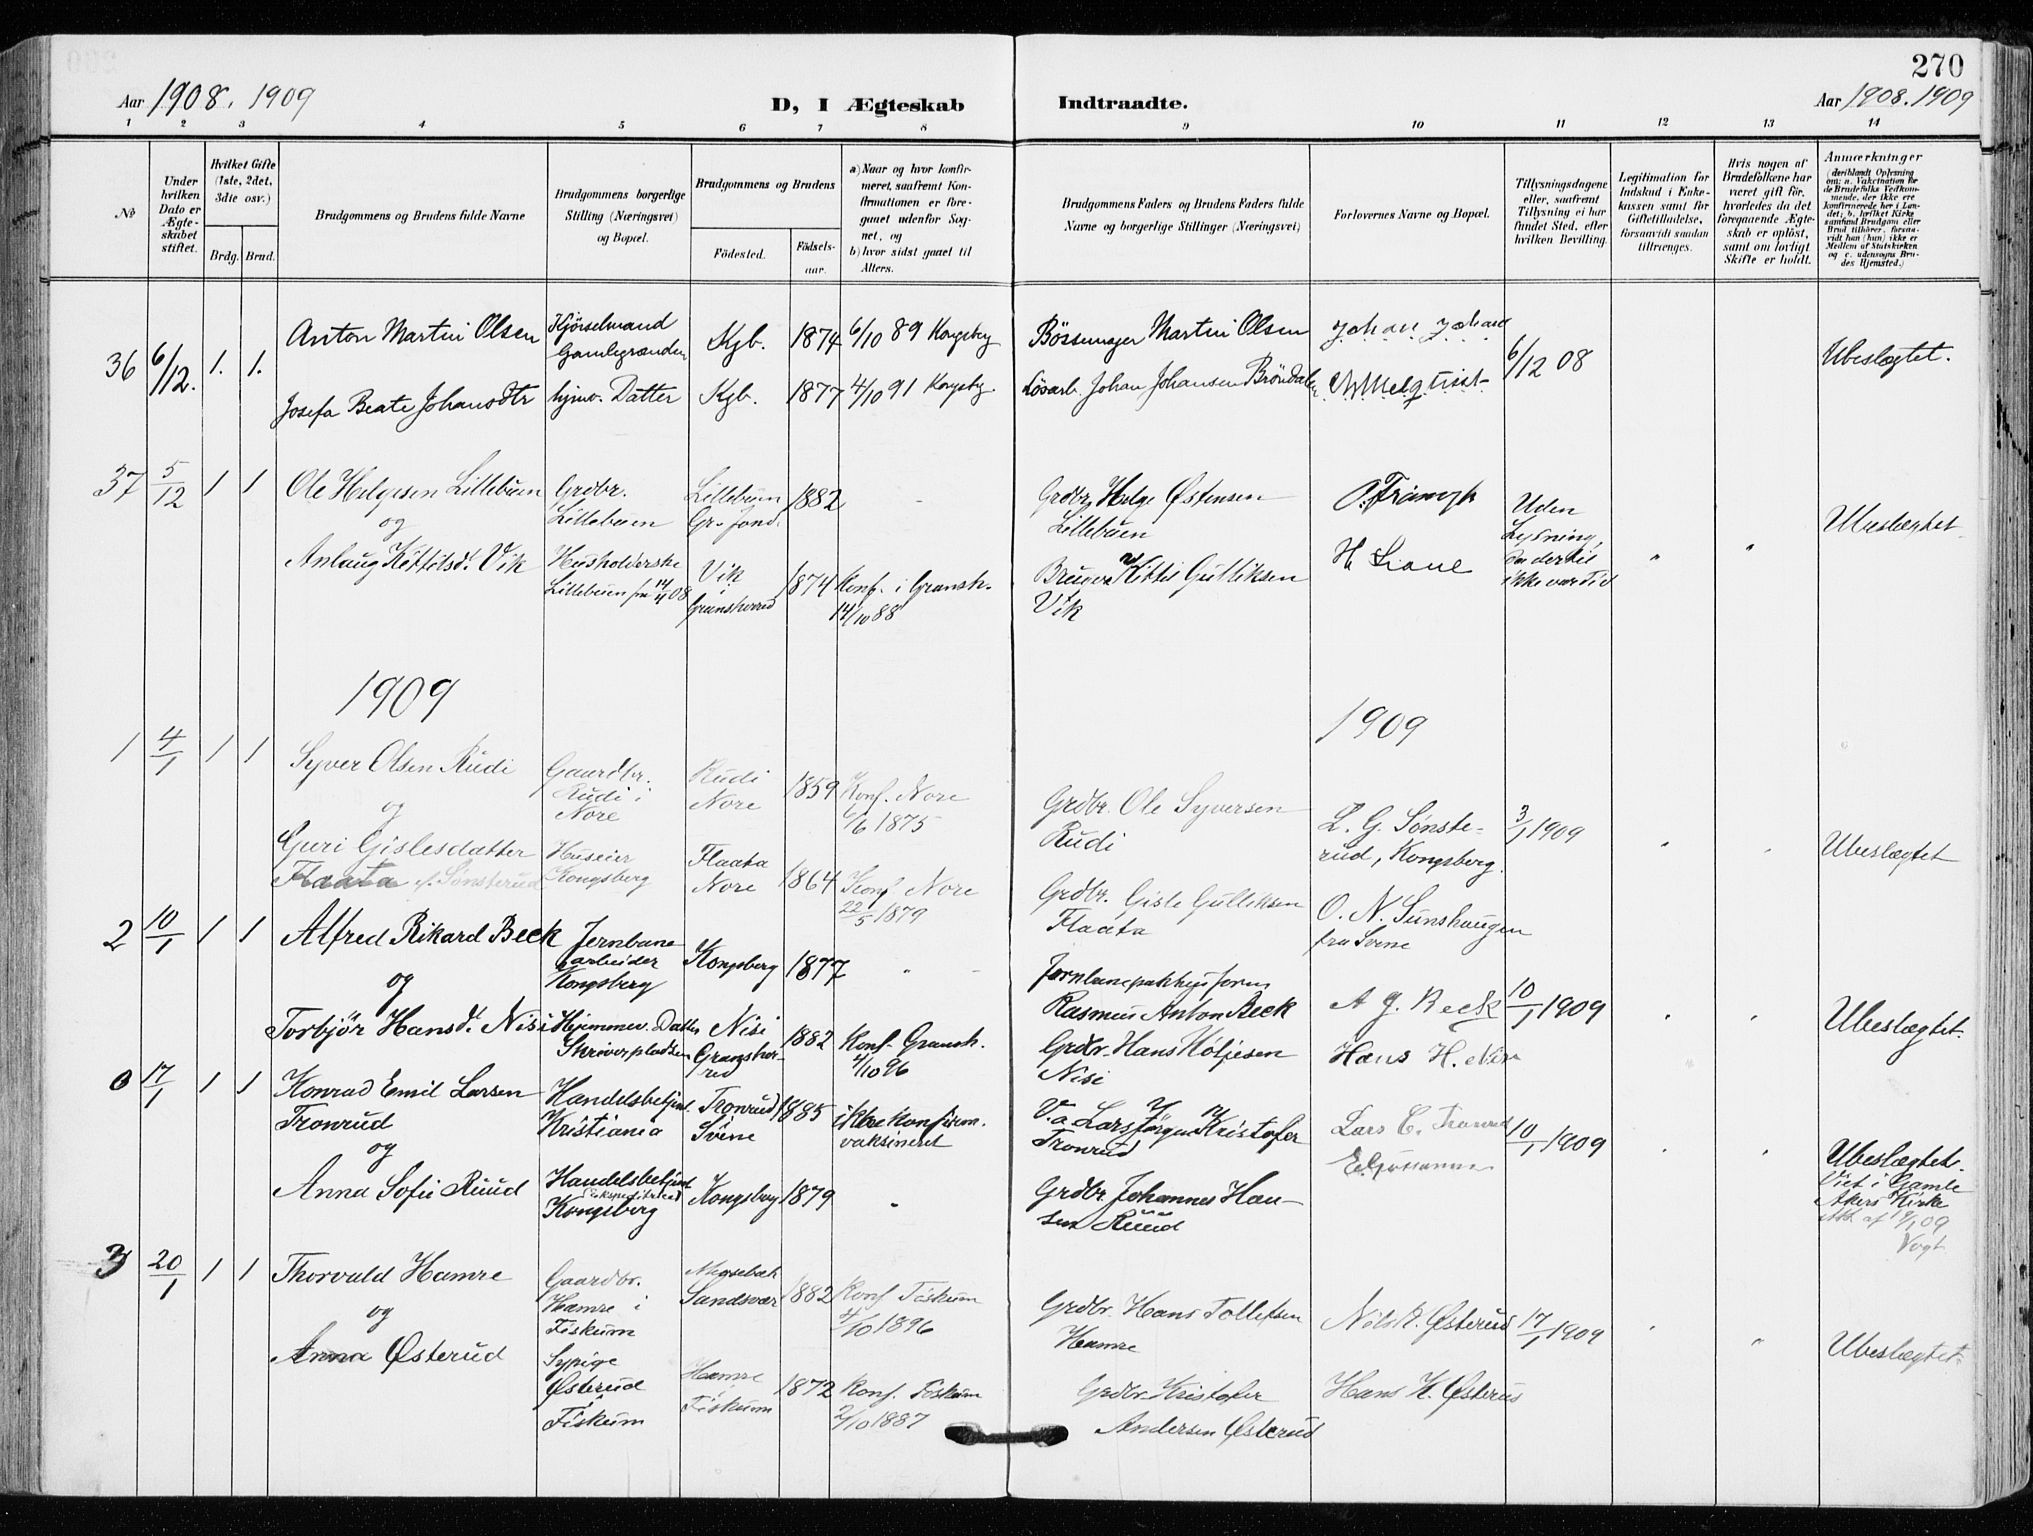 270
Aar 1908. 1909
D, I Ægteskab Indtraadte.
Aar 1908. 1909
1 2 3 4 5 6 7 8 9 10 11 12 13 14
No
Under hvilken Dato er Ægteskabet stiftet.
Hvilket Gifte (1ste, 2det, 3die osv.)
Brdg. Brud.
Brudgommens og Brudens fulde Navne
Brudgommens borgerlige Stilling (Næringsvei) og Bopæl.
Brudgommens og Brudens
Fødested. Fødselsaar.
a) Naar og hvor konfirmeret, saafremt Konfirmationen er foregaaet udenfor Sognet, og
b) hvor sidst gaaet til Alters.
Brudgommens Faders og Brudens Faders fulde Navne og borgerlige Stillinger (Næringsvei)
Forlovernes Navne og Bopæl.
Tillysningsdagene eller, saafremt Tillysning ei har fundet Sted, efter hvilken Bevilling.
Legitimation for Indskud i Enkekassen samt for Giftetilladelse, forsaavidt saadan tiltrænges.
Hvis nogen af Brudefolkene har været gift før, hvorledes da det foregaaende Ægteskab er opløst, samt om lovligt Skifte er holdt.
Anmærkninger
(deriblandt Oplysning om: a. Vakcination for de Brudefolks Vedkommende, der ikke ere konfirmerede her i Landet; b. hvilket Kirkesamfund Brudgom eller Brud tilhører, forsaavidt han (hun) ikke er Medlem af Statskirken og c. udensogns Brudes Hjemsted.)
36 6/12. 1. 1.
Anton Martin Olsen
Kjørselmand
Gamlegrænden
Kgb. 1874 6/10 89 Kongsberg
Bøssemager Martin Olsen
Johan Johans
6/12 08
Ubeslægtet.
Josefa Beate Johansdtr
hjmv. Datter
Kgb. 1877 4/10 91 Kongsbg.
Løsarb. Johan Johansen Brøndalen
37 5/12 1 1
Ole Helgesen Lillebuen
og
Grdbr.
Lillebuen
Lillebuen
1882
Grdbr. Helge Østensen
Lillebuen
Uden
Lysning,
da dertil
ikke var Tid
Ubeslægtet
Anlaug Kittilsd. Vik
Husholderske
Lillebuen fra 14/4 08
Vik
Gransherred
1874
Konf. i Gransh.
14/10 88
Bruger Kittil Gulliksen
Vik
H. Liane
1909
1909
1 4/1 1 1
Syver Olsen Rudi
og
Gaardbr.
Rudi i
Nore
Rudi
Nore
1859
Konf. Nore
6/6 1875
Grdbr. Ole Syversen
Rudi
L. G. Sønste-
rud, Kongsberg.
3/1 1909
Ubeslægtet
Guri Gislesdatter
Flaata f. Sønsterud
Huseier
Kongsberg
Flaata
Nore
1864
Konf. Nore
22/5 1879
Grdbr. Gisle Gulliksen
Flaata
O. N. Sunshaugen
fra Svene
2 10/1 1 1
Alfred Rikard Beck
og
Jernbane
arbeider
Kongsberg
Kongsberg
1877
Rasmus Anton Beck
A G. Beck
10/1 1909
Ubeslægtet.
Torbjør Hansd. Nisi
Hjemmev. Datter
Skriverpladsen
Nisi
Gransher-
red
1882
Konf. Gransh.
4/10 96
Grdbr. Hans Høljesen
Nisi
Hans H. Nisi
0 17/1 1 1
Konrad Emil Larsen
Tronrud
og
Handelsbetjent.
Kristiania
Tronrud
Svene
1885
ikke konfirm.
vaksineret
V.a. Lars Jørgen Kristofer
Tronrud
Lars C. Tronrud
10/1 1909
Ubeslægtet.
Viet i Gamle
Akers Kirke
Att. af 19/1 09
Vogt
Anna Sofie Ruud
Handelsbetjent
(Ekspeditrice)
Kongsberg
Kongsberg
1879
Grdbr. Johannes Han-
sen Ruud
3 20/1 1 1
Thorvald Hamre
og
Gaardbr.
Hamre i
Fiskum
Sandsvær
1882
Konf. Fiskum
4/10 1896
Grdbr. Hans Tollefsen
Hamre
Nils K. Østerud
17/1 1909
Ubeslægtet.
Anna Østerud
Sypige
Østerud
Fiskum
Hamre
Fiskum
1872
Konf. Fiskum
2/10 1887
Grdbr. Kristofer
Andersen Østerud
Hans K. Østerud